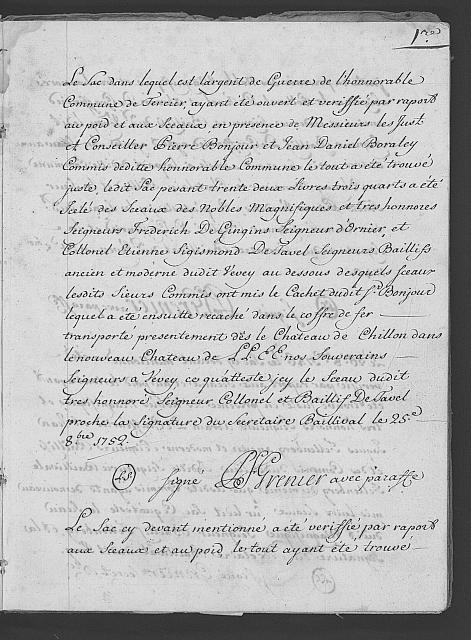 1.re
Le Sac dans lequel est l'argent de Guerre de l'honnorable
Commune de Tercier, ayant été ouvert et veriffié par raport
au poid et aux Sceaux en presence de Messieurs les Just.
et Conseiller Pierre Bonjour et Jean Daniel Boraley
Commis deditte honnorable Commune le tout a été trouvé
juste, ledit Sac pesant trente deux Livres trois quarts a été
Scelé des Sceaux des Nobles Magnifiques et tres honnores
Seigneurs Frederich De Gingins Seigneur d'Ornier, et
Collonel Etienne Sigismond De Tavel Seigneurs Baillifs
ancien et moderne dudit Vevey au dessous desquels sceaux
lesdits Sieurs Commis ont mis le Cachet dudit Sr. Bonjour
lequel a été ensuitte recaché dans le coffre de fer
transporté presentement dès le Chateau de Chillon dans
le nouveau Chateau de LLEE nos Souverains
Seigneurs a Vevey, ce qu'atteste jcy le Sceau dudit
tres honnoré Seigneur Collonel et Baillif De Tavel
proche la Signature du Secretaire Baillival le 25.e
8bre 1752.
LS signé Grenier avec paraffe
Le Sac cy devant mentionné a été veriffié par raport
aux Sceaux et au poid le tout ayant été trouvé